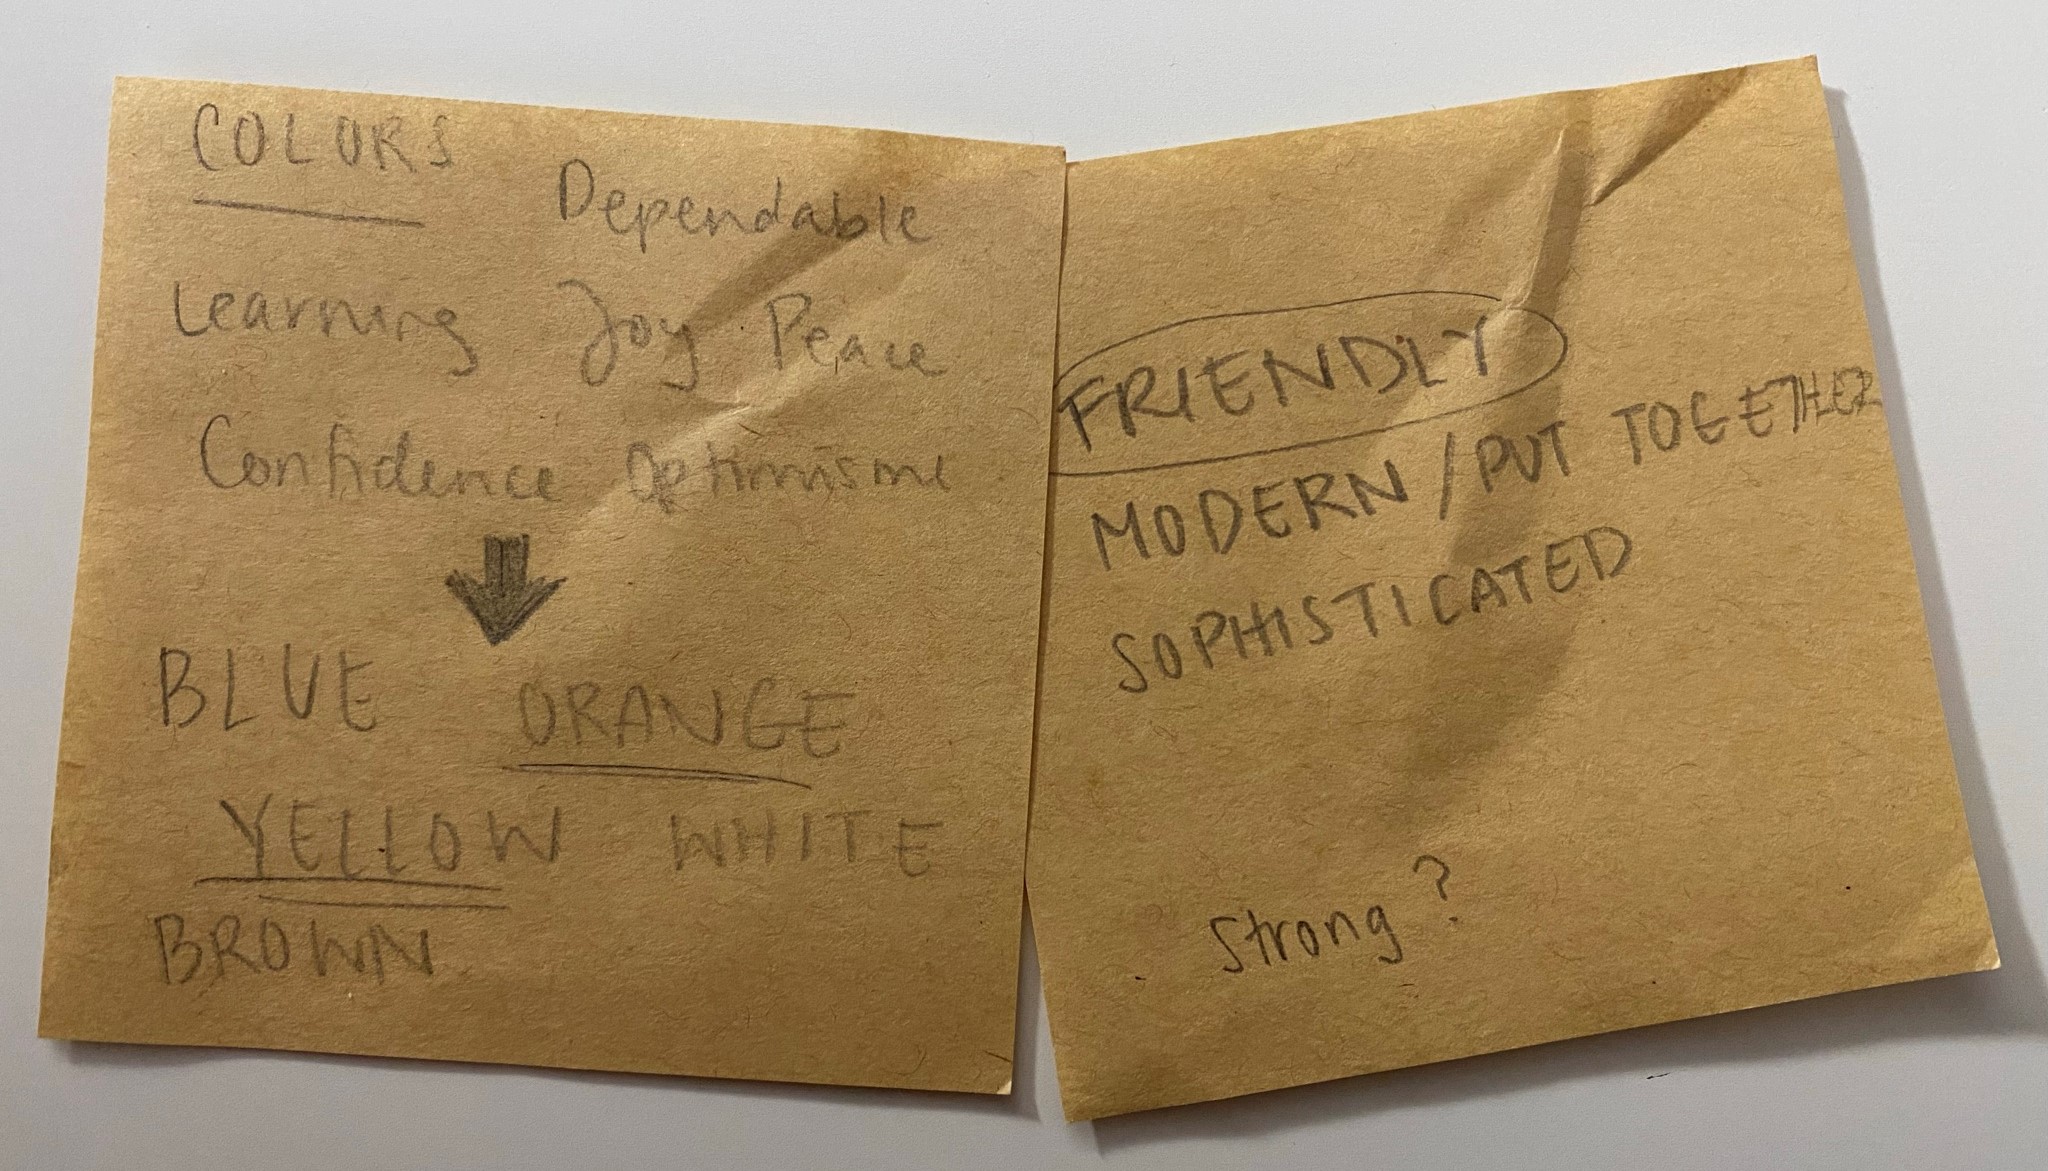 COLORS
Dependable
Learning Joy Peace
Confidence Optimisme
BLUE ORANGE
YELLOW WHITE
BROWN
FRIENDLY
MODERN / PUT TOGETHER
SOPHISTICATED
Strong?